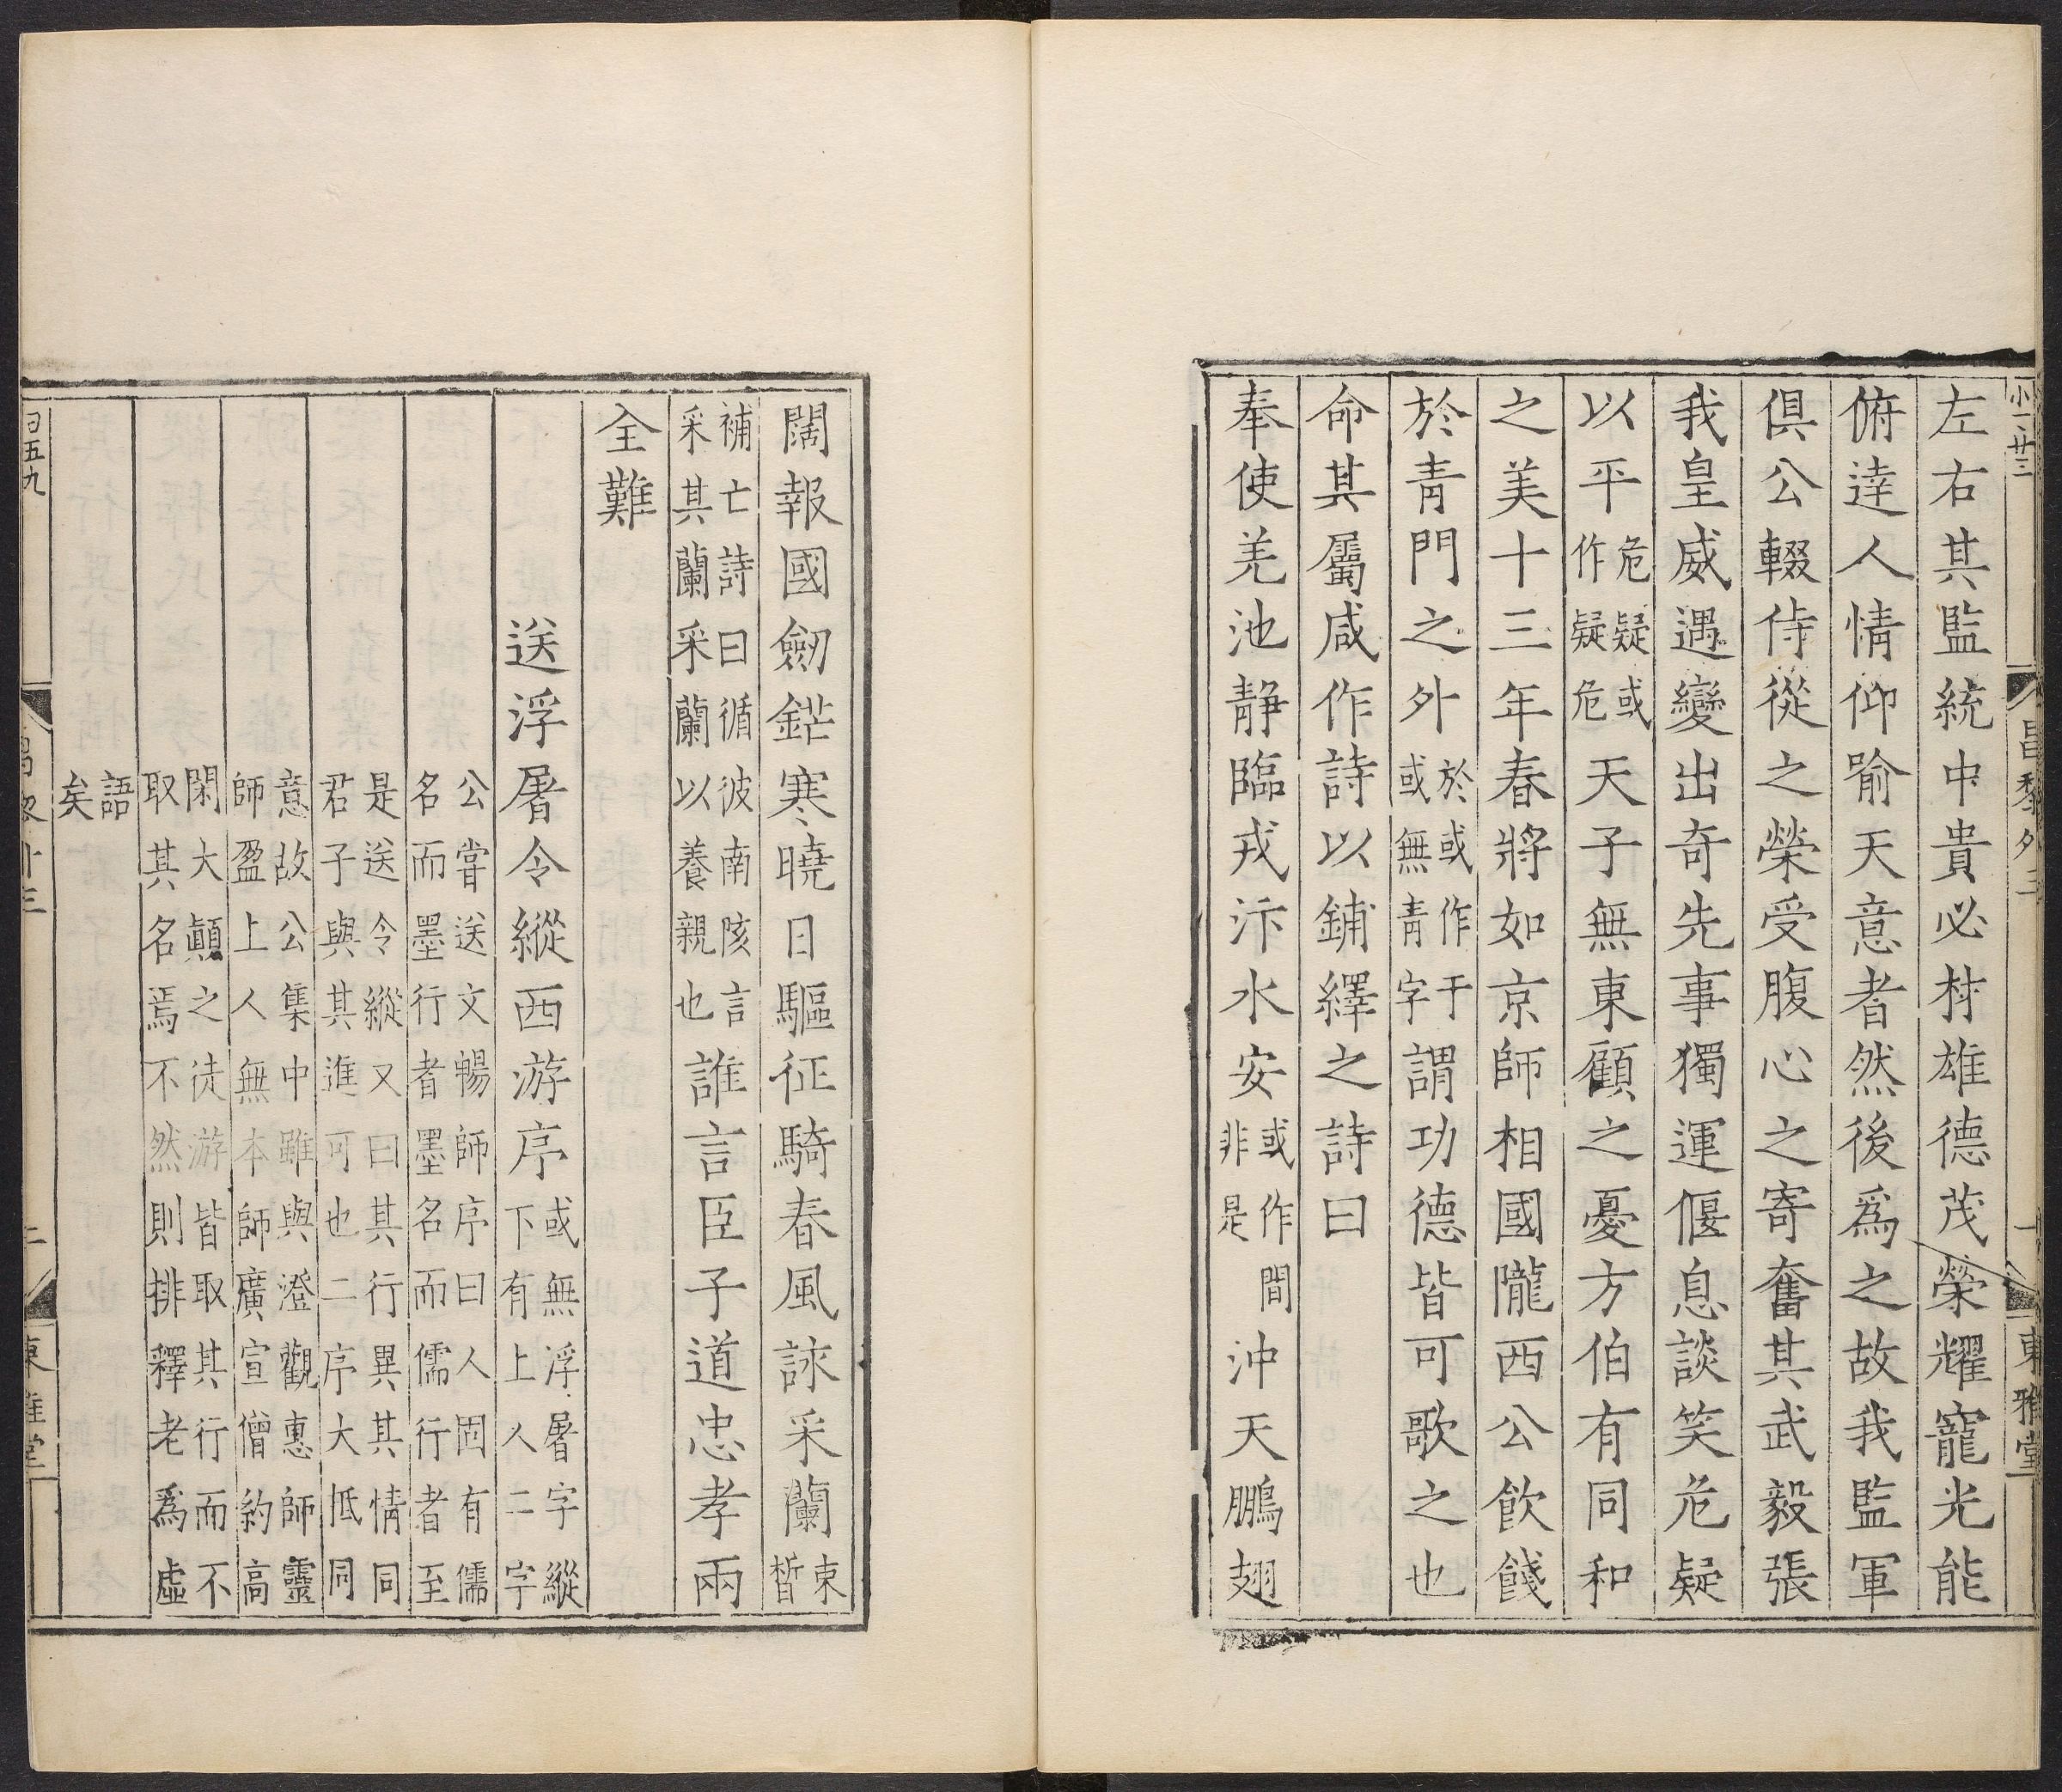 小一廿三
昌黎外三
一
東雅堂
左右其監統中貴必材雄德茂榮耀寵光能
俯達人情仰喻天意者然後爲之故我監軍
俱公輟侍從之榮受腹心之寄奮其武毅張
我皇威遇變出奇先事獨運偃息談笑危疑
以平危疑或作疑危天子無東顧之憂方伯有同和
之美十三年春將如京師相國隴西公飲餞
於青門之外於或作于或無青字謂功德皆可歌之也
命其屬咸作詩以鋪繹之詩曰
奉使羌池靜臨戎汴水安或作間非是沖天鵬翅
闊報國劒鋩寒曉日驅征騎春風詠采蘭束晳
補亡詩曰循彼南陔言采其蘭采蘭以養親也誰言臣子道忠孝兩
全難
送浮屠令縱西游序或無浮屠字縱下有上人二字
公嘗送文暢師序曰人固有儒名而墨行者墨名而儒行者至
是送令縱又曰其行異其情同君子與其進可也二序大抵同
意故公集中雖與澄觀惠師靈師盈上人無本師廣宣僧約高
閑大顛之徒游皆取其行而不取其名焉不然則排釋老爲虛
語矣
日五九
二
東雅堂